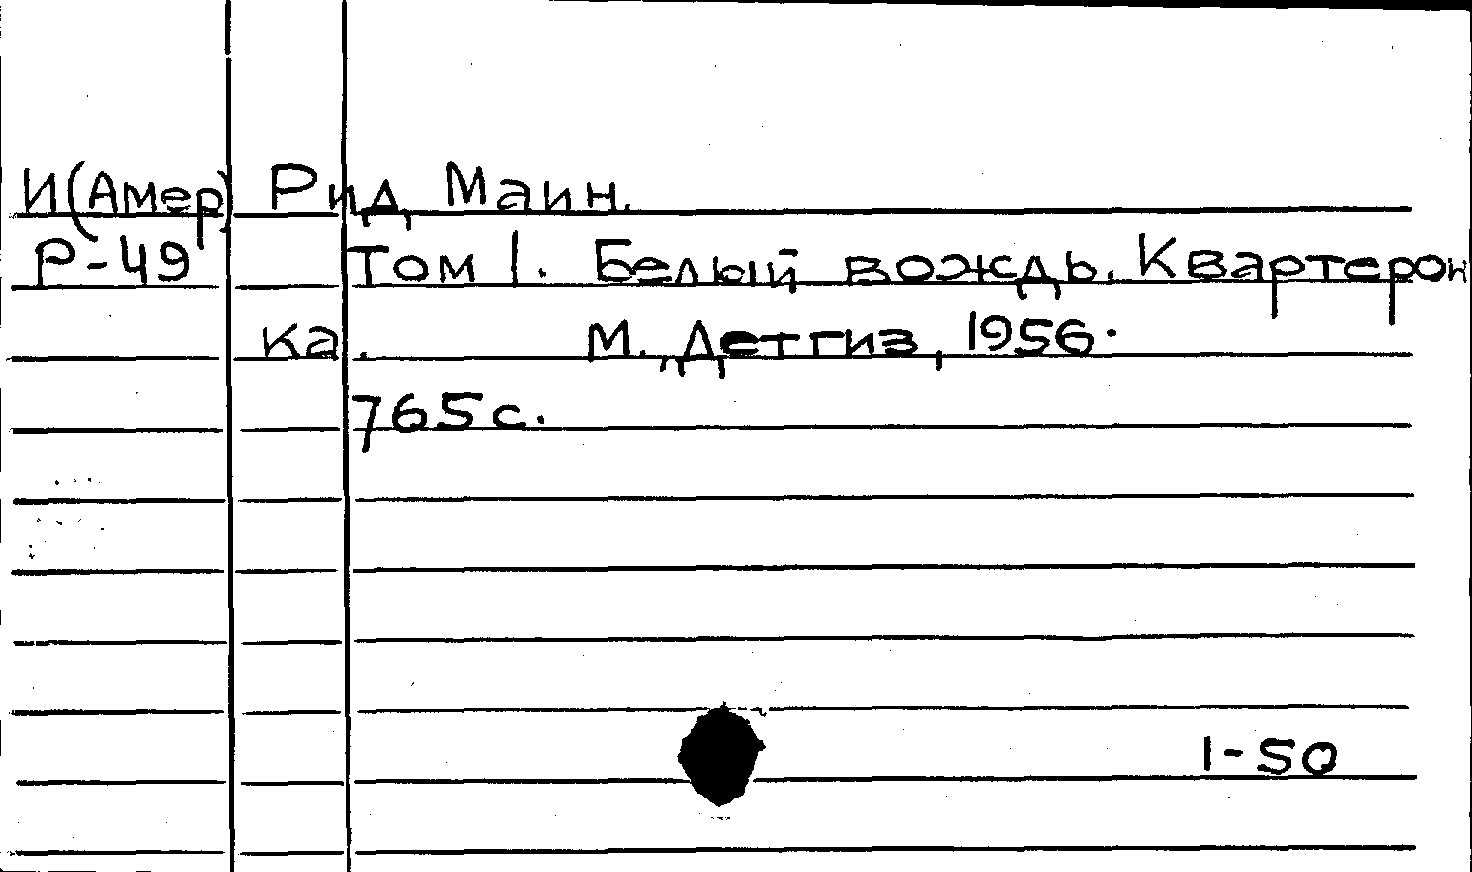 И(Амер) Рид, Маин.
Р-49 Том 1. Белый вождь. Квартерон
ка. М. „Детгиз, 1956.
765с.
1-50